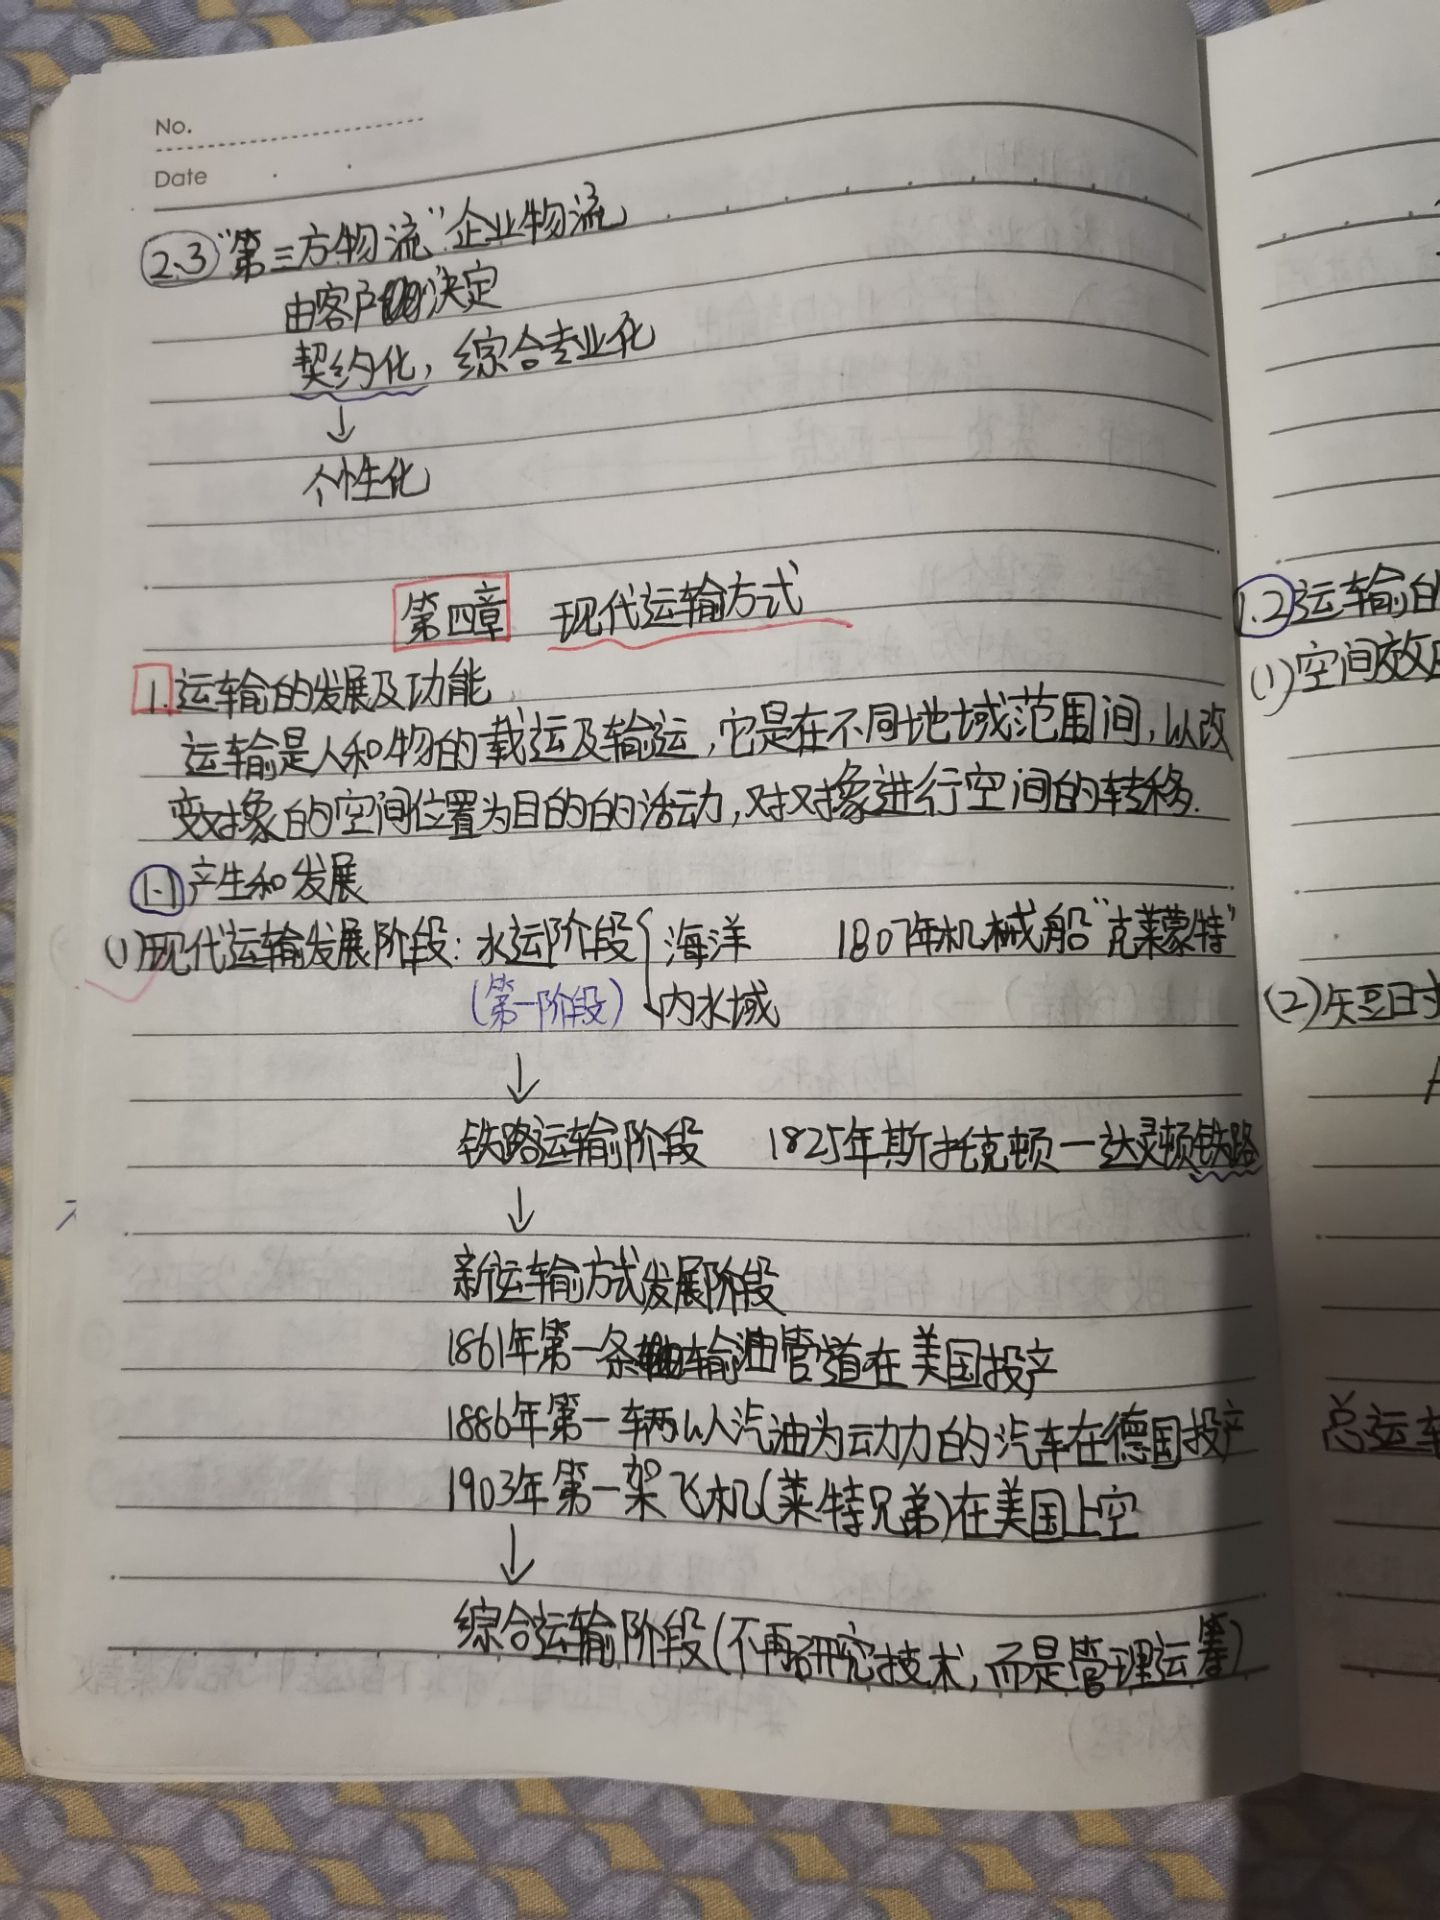 No.
Date
2.3 “第三方物流”企业物流
由客户决定
契约化，综合专业化
↓
个性化
第四章 现代运输方式
1.运输的发展及功能
运输是人和物的载运及输运，它是在不同地域范围间，以改
变对象的空间位置为目的的活动，对对象进行空间的转移.
1.1 产生和发展
(1)现代运输发展阶段：水运阶段{海洋 1807年机械船“克莱蒙特”
(第一阶段) 内水域
↓
铁路运输阶段 1825年斯托克顿—达灵顿铁路
↓
新运输方式发展阶段
1861年第一条输油管道在美国投产
1886年第一辆以人汽油为动力的汽车在德国投产
1903年第一架飞机(莱特兄弟)在美国上空
↓
综合运输阶段(不再研究技术，而是管理运筹)
1.2 运输的
(1)空间效
(2)
总运